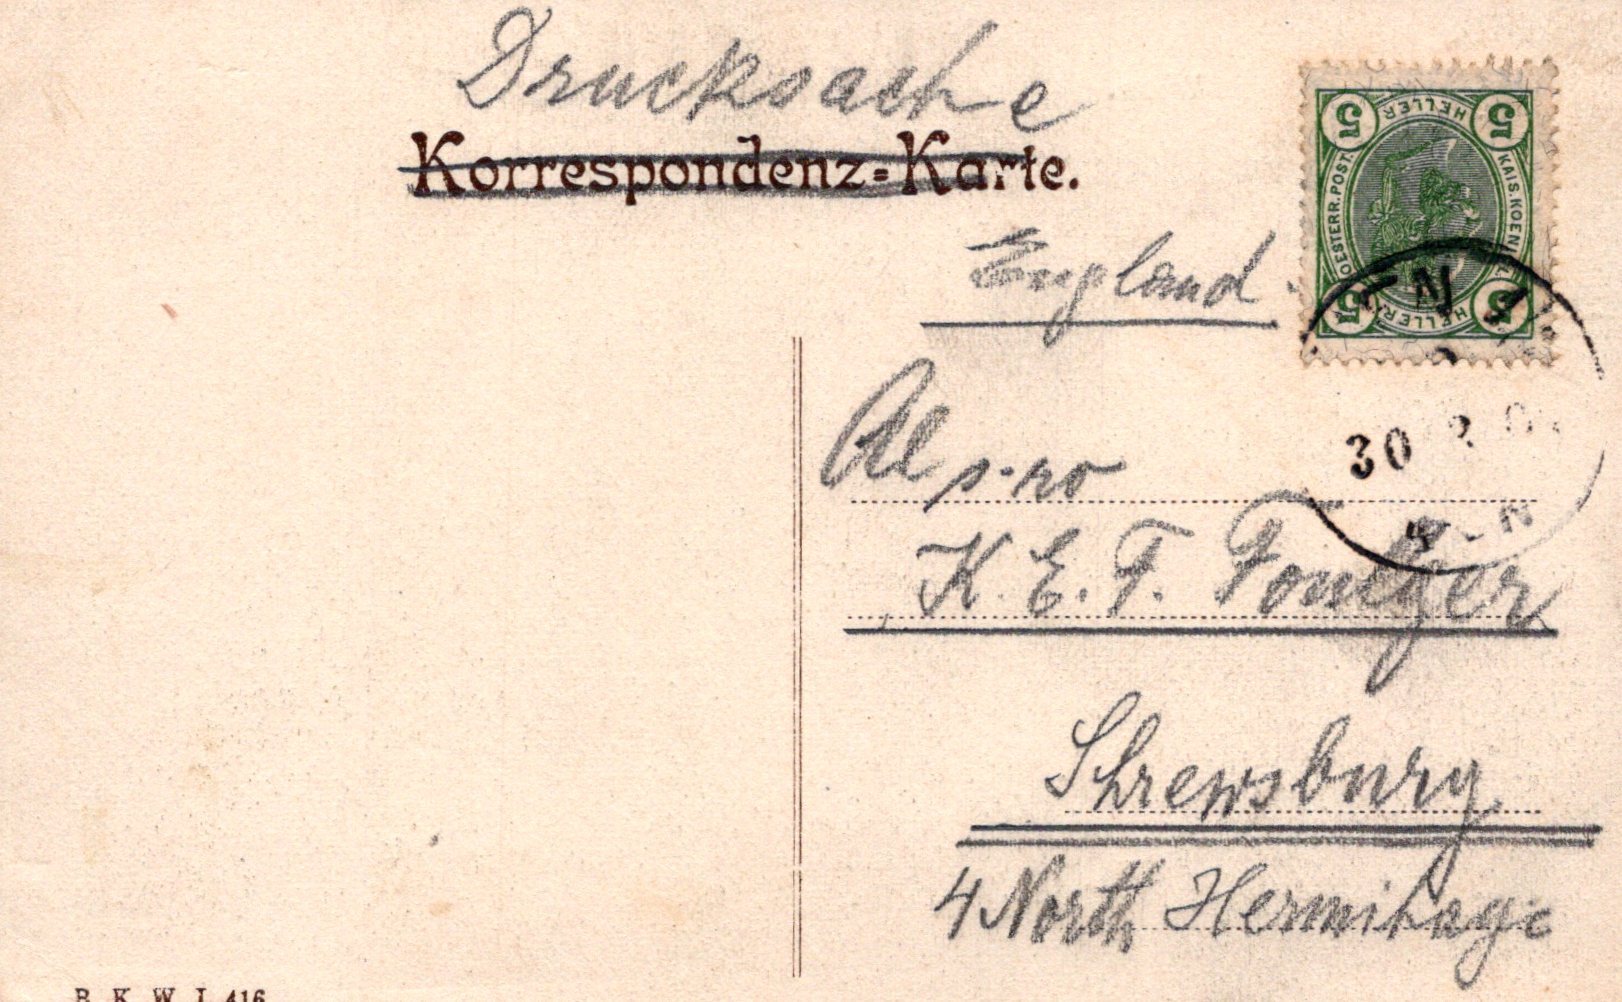 Drucksache
Korrespondenz=Karte.
5 HELLER 5
OESTERR. POST.
KAIS. KOEN
5 HELLER 5
England
30
K. E. T.
Shrewsbury
4 North Hermitage
B. K. W. I. 416